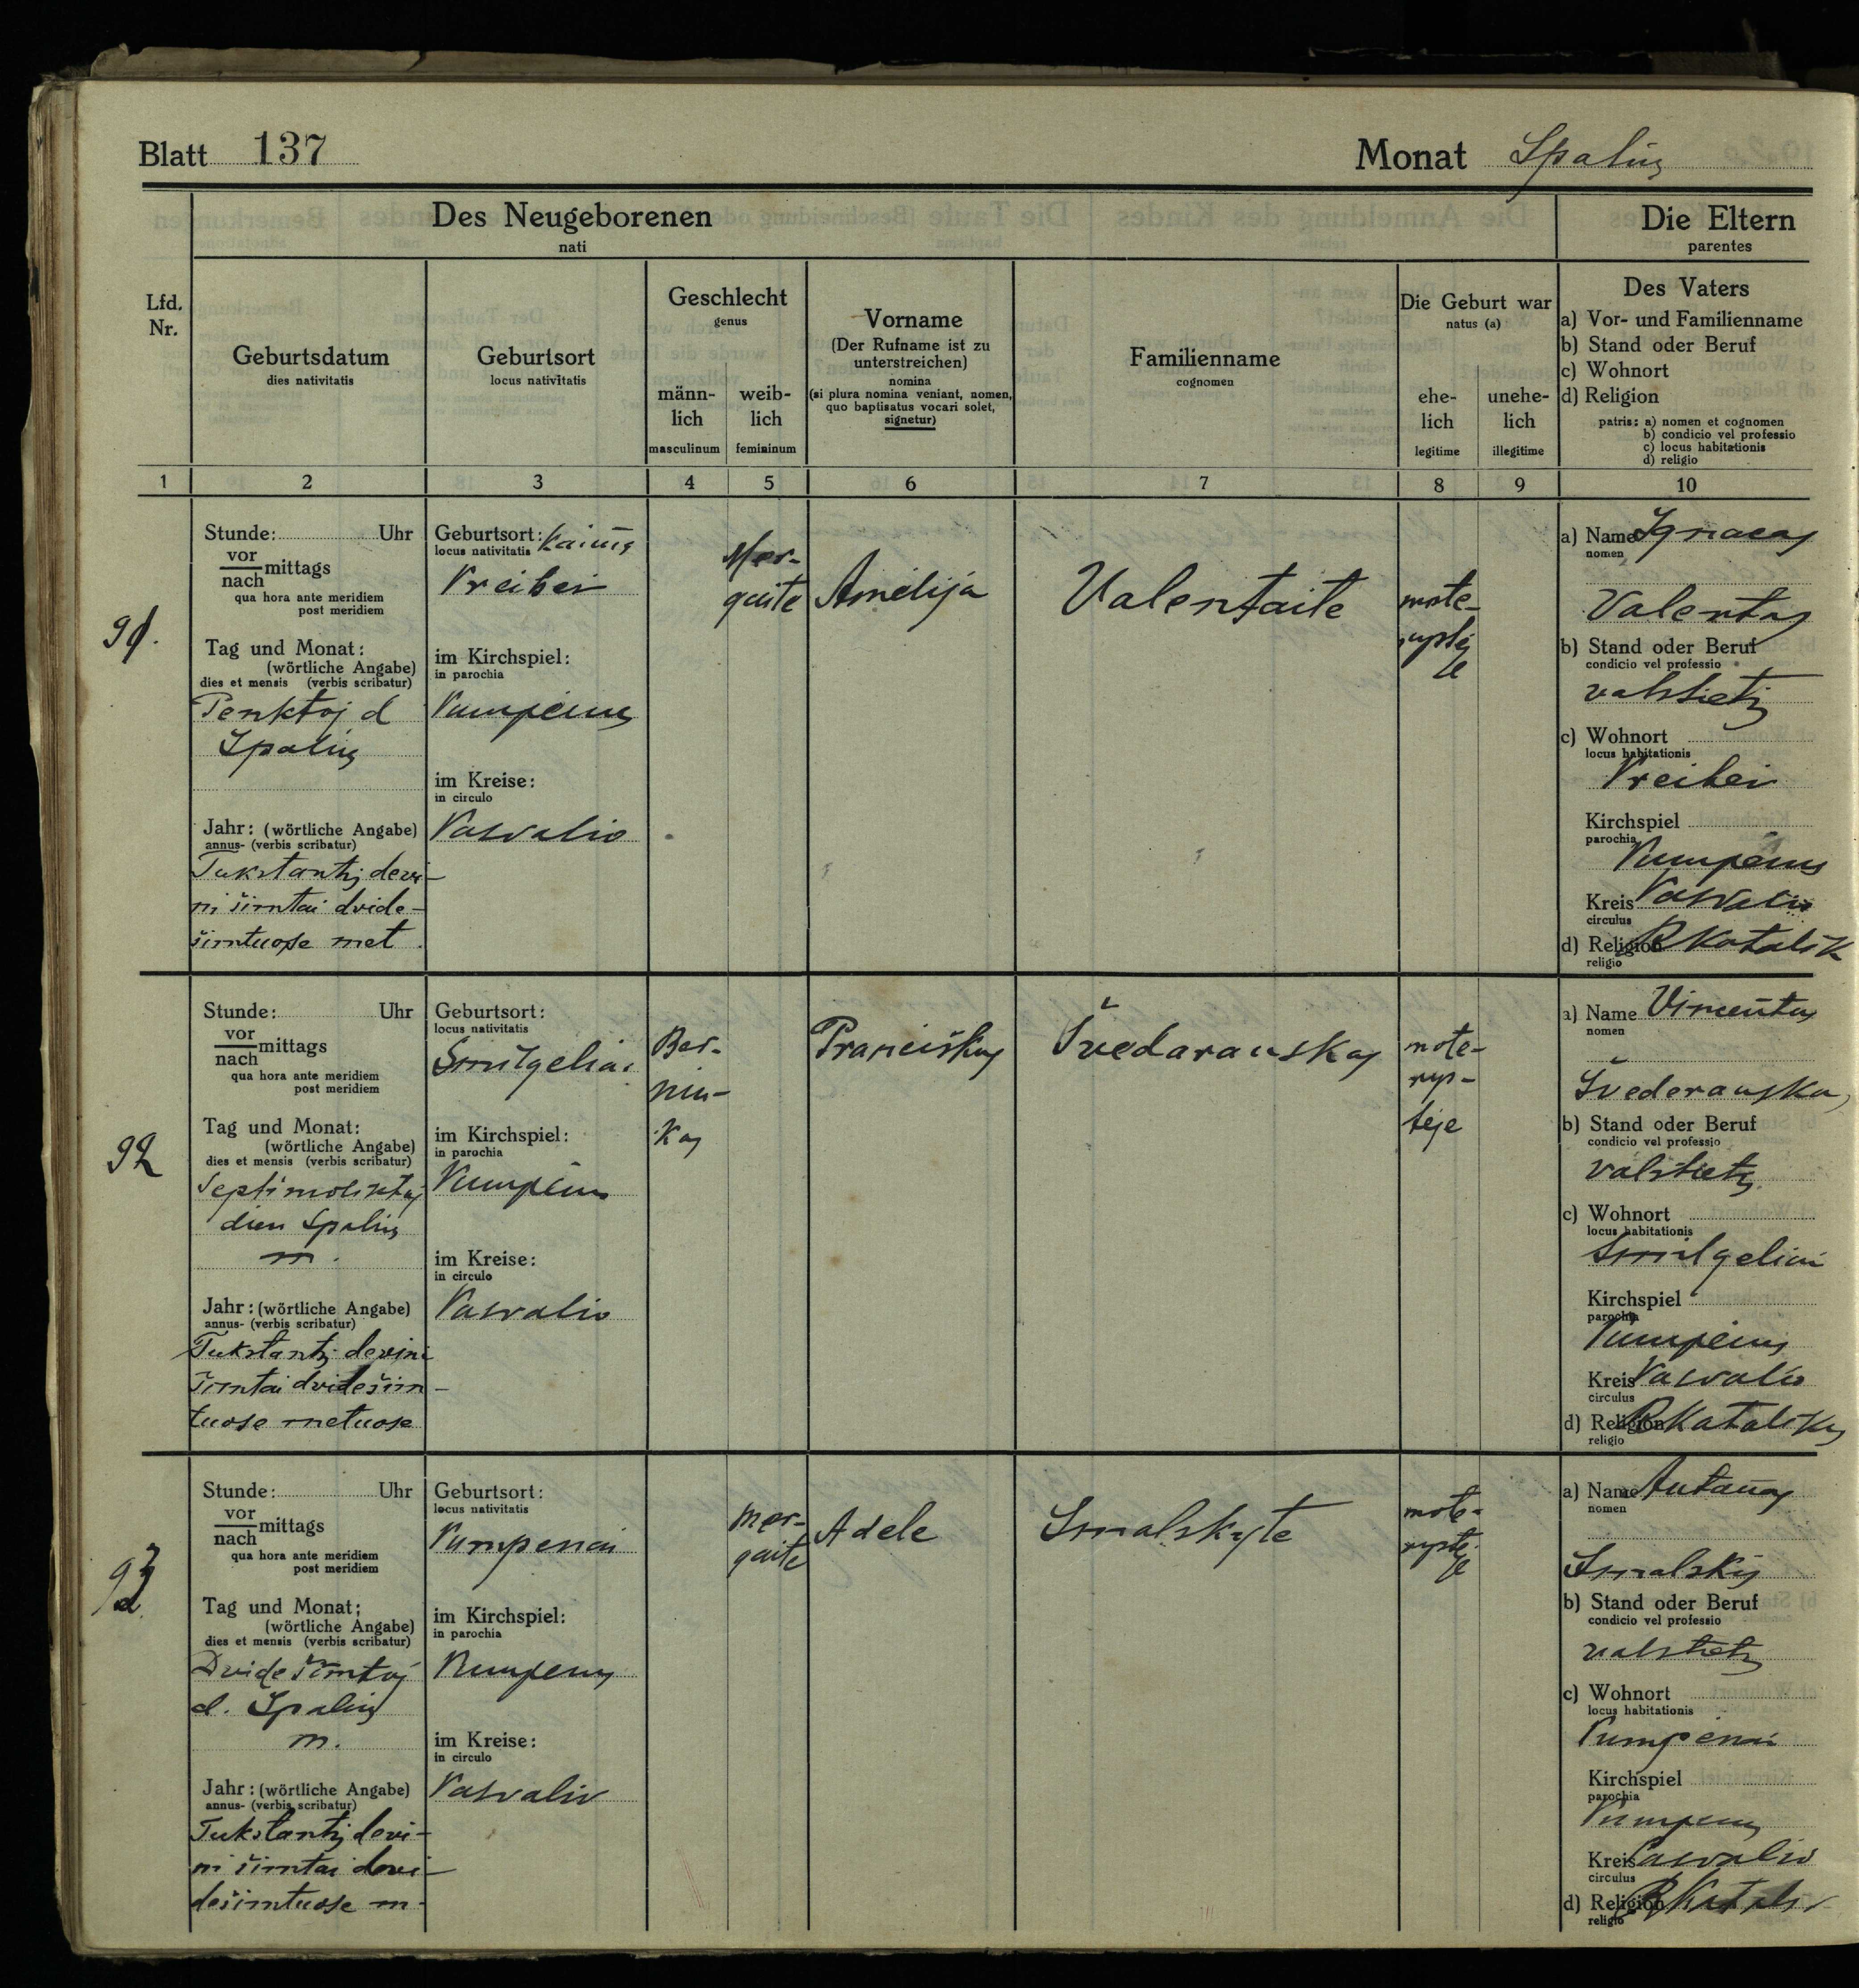 Blatt 137
Monat Spalių
Des Neugeborenen
nati
Die Eltern
parentes
Lfd.
Nr.
Geburtsdatum
dies nativitatis
Geburtsort
locus nativitatis
Geschlecht
genus
männ-
lich
masculinum
weib-
lich
femininum
Vorname
(Der Rufname ist zu
unterstreichen)
nomina
(si plura nomina veniant, nomen,
quo baptisatus vocari solet,
signetur)
Familienname
cognomen
Die Geburt war
natus (a)
ehe-
lich
legitime
unehe-
lich
illegitime
Des Vaters
a) Vor- und Familienname
b) Stand oder Beruf
c) Wohnort
d) Religion
patris: a) nomen et cognomen
b) condicio vel professio
c) locus habitationis
d) religio
1 2 3 4 5 6 7 8 9 10
91.
Stunde: Uhr
vor
nach mittags
qua hora ante meridiem
post meridiem
Tag und Monat:
(wörtliche Angabe)
dies et mensis (verbis scribatur)
Penktoj d
Spalių
Jahr: (wörtliche Angabe)
annus- (verbis scribatur)
Tukstantį devi-
ni šimtai dvide-
šimtuose met.
Geburtsort: Kaimą
locus nativitatis
Kreibei
im Kirchspiel:
in parochia
Pumpėnų
im Kreise:
in circulo
Pasvalio
Mer-
gaite
Amelija
Valentaite
mote-
rystėj
e
a) Name Ignacas
nomen
Valentas
b) Stand oder Beruf
condicio vel professio
valstietis
c) Wohnort
locus habitationis
Kreibei
Kirchspiel
parochia
Pumpenų
Kreis Pasvalio
circulus
d) Religion R Katalik
religio
92
Stunde: Uhr
vor
nach mittags
qua hora ante meridiem
post meridiem
Tag und Monat:
(wörtliche Angabe)
dies et mensis (verbis scribatur)
Septimoliktoj
dien Spalių
m.
Jahr: (wörtliche Angabe)
annus- (verbis scribatur)
Tukstantį devini
šimtai dvidešim-
tuose metuose
Geburtsort:
locus nativitatis
Smilgeliai
im Kirchspiel:
in parochia
Pumpėnų
im Kreise:
in circulo
Pasvalio
Ber-
niu-
kas
Pranciškus
Švedarauskas
mote-
rys-
teje
a) Name Vincentas
nomen
Švederauskas
b) Stand oder Beruf
condicio vel professio
valstietis
c) Wohnort
locus habitationis
Smilgeliai
Kirchspiel
parochia
Pumpėnų
Kreis Pasvalio
circulus
d) Religion R Katalikų
religio
93
Stunde: Uhr
vor
nach mittags
qua hora ante meridiem
post meridiem
Tag und Monat;
(wörtliche Angabe)
dies et mensis (verbis scribatur)
Dvidešimtoj
d. Spalių
m.
Jahr: (wörtliche Angabe)
annus- (verbis scribatur)
Tukstantį devi-
ni šimtai dvi-
dešimtuose m.
Geburtsort:
locus nativitatis
Pumpenai
im Kirchspiel:
in parochia
Pumpenų
im Kreise:
in circulo
Pasvalio
mer-
gaite
Adele
Smalskyte
mote-
rystė-
je
a) Name Antanas
nomen
Smalskis
b) Stand oder Beruf
condicio vel professio
valstietis
c) Wohnort
locus habitationis
Pumpėnai
Kirchspiel
parochia
Pumpenų
Kreis Pasvalio
circulus
d) Religion R Katali
religio